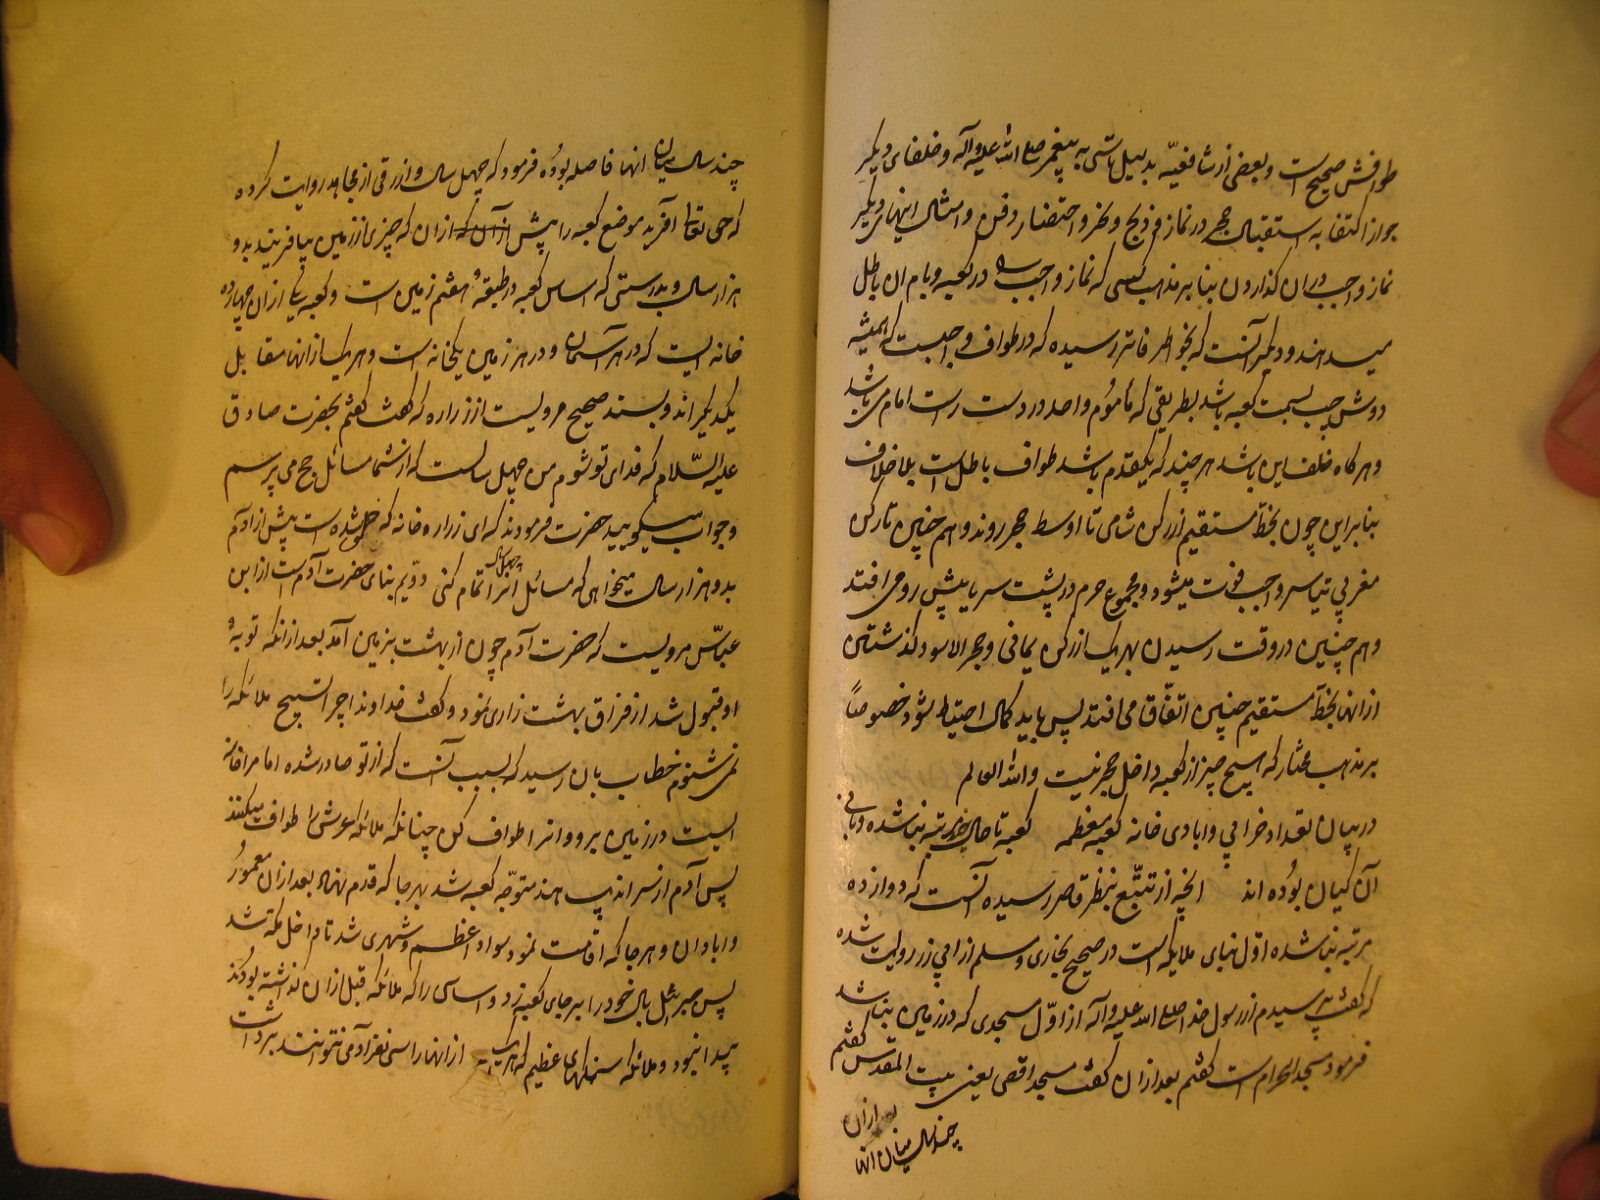 طوافش صحیح است و بعضی از شافعیّه بدلیل تاسّی به پیغمبر صلی الله علیه و آله و خلفای دیگر
جواز اکتفا به استقبال حجر در نماز و ذبح و نحر و احتضار و دفن و امثال اینهای دیگر
نماز واجب در ان گذاردن بنا بر مذهب کسی که نماز واجب را در کعبه و بام ان باطل
میداند و دیگر آنست که بخواطر فاتر رسیده که در طواف واجبست که همیشه
دوش چپ بسمت کعبه باشد بطریقی که ماموم واحد در دست راست امام می باشد
و هرگاه خلف این باشد هر چند که یکقدم باشد طواف باطل است بلا خلاف
بنا براین چون بخطّ مستقیم از رکن شامی تا اوسط حجر روند و هم چنین تا رکن
مغربی تیاسر واجب فوت میشود و مجموع حرم در پشت سر یا پیش رو می افتد
و هم چنین در وقت رسیدن بهریک از رکن یمانی و حجر الاسود و گذشتن
از انها بخطّ مستقیم چنین اتفّاق می افتد پس باید کمال احتیاط بشود خصوصاً
بر مذهب مختار که هیچ چیز از کعبه داخل حجر نیست والله العالم
در بیان تعداد خرابی و ابادی خانه کعبه معظمه کعبه تا حال چند مرتبه بنا شده و بانی
آن کیان بوُده اند انچه از تتبّع بنظر قاصر رسیده آنست که دوازده
مرتبه بنا شده اوّل بنای ملایکه است در صحیح بخاری و مسلم از ابی زر روایت شده
که گفت پرسیدم از رسول خدا صلی الله علیه و آله از اوّل مسجدی که در زمین بنا شد
فرمود مسجد الحرام است گفتم بعد از ان گفت مسجد اقصی یعنی بیت المقدس گفتم
بعد ازان
چند سال میان انها
چند سال میان انها فاصله بوُده فرمود که چهل سال و ازرقی از مجاهد روایت کرده
که حق تعالی آفرید موضع کعبه را پیش از آن که ازان که چیزی از زمین بیافریند بدو
هزار سال و بدرستی که اساس کعبه در طبقهٔ هفتم زمین است و کعبه یکی از ان چهارده
خانه ایست که در هر آسمان و در هر زمین یکخانه است و هر یک از انها مقابل
یکدیگر اند و بسند صحیح مرویست از زراره که گفت گفتم بحضرت صادق
علیه السّلام که فدای تو شوم من چهل سالست که از شما مسائل حج می پرسم
و جواب میگویید حضرت فرمودند که ای زراره خانه که حج شده است پیش از آدم
بدو هزار سال میخواهی که مسائل آنرا چهل سال تمام کنی دوّیم بنای حضرت آدم است از ابن
عباّس مرویست که حضرت آدم چون از بهشت بزمین آمد بعد از انکه توبهٔ
او قبول شد از فراق بهشت زاری نمود و گفت خداوندا چرا تسبیح ملائکه را
نمی شنوم خطاب بان رسید که بسبب آنست که از تو صادر شده اما مرا خانه
ایست در زمین برو و انرا طواف کن چنانکه ملائکه عرش را طواف میکنند
پس آدم از سراندیب هند متوجّه کعبه شد بهر جا که قدم نهاد بعد ازان معموُر
و ابادان و هر جا که اقامت نمود سواد اعظم و شهری شد تا داخل مکّه شد
پس جبرئیل بال خود را بر جای کعبه زد و اساسی را که ملائکه قبل ازان گذاشته بودند
پیدا نمود و ملائکه سنگهای عظیم که هر یک از انها را سی نفر آدمی نتوانند برداشت